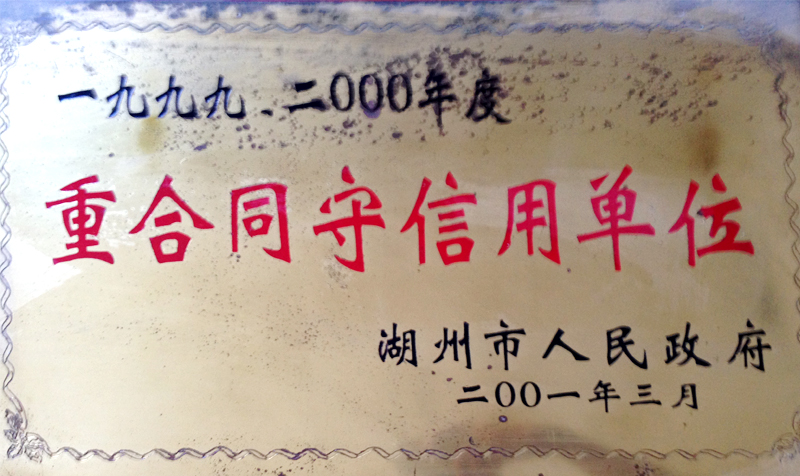 一九九九、二000年度
重合同守信用单位
湖州市人民政府
二00一年三月